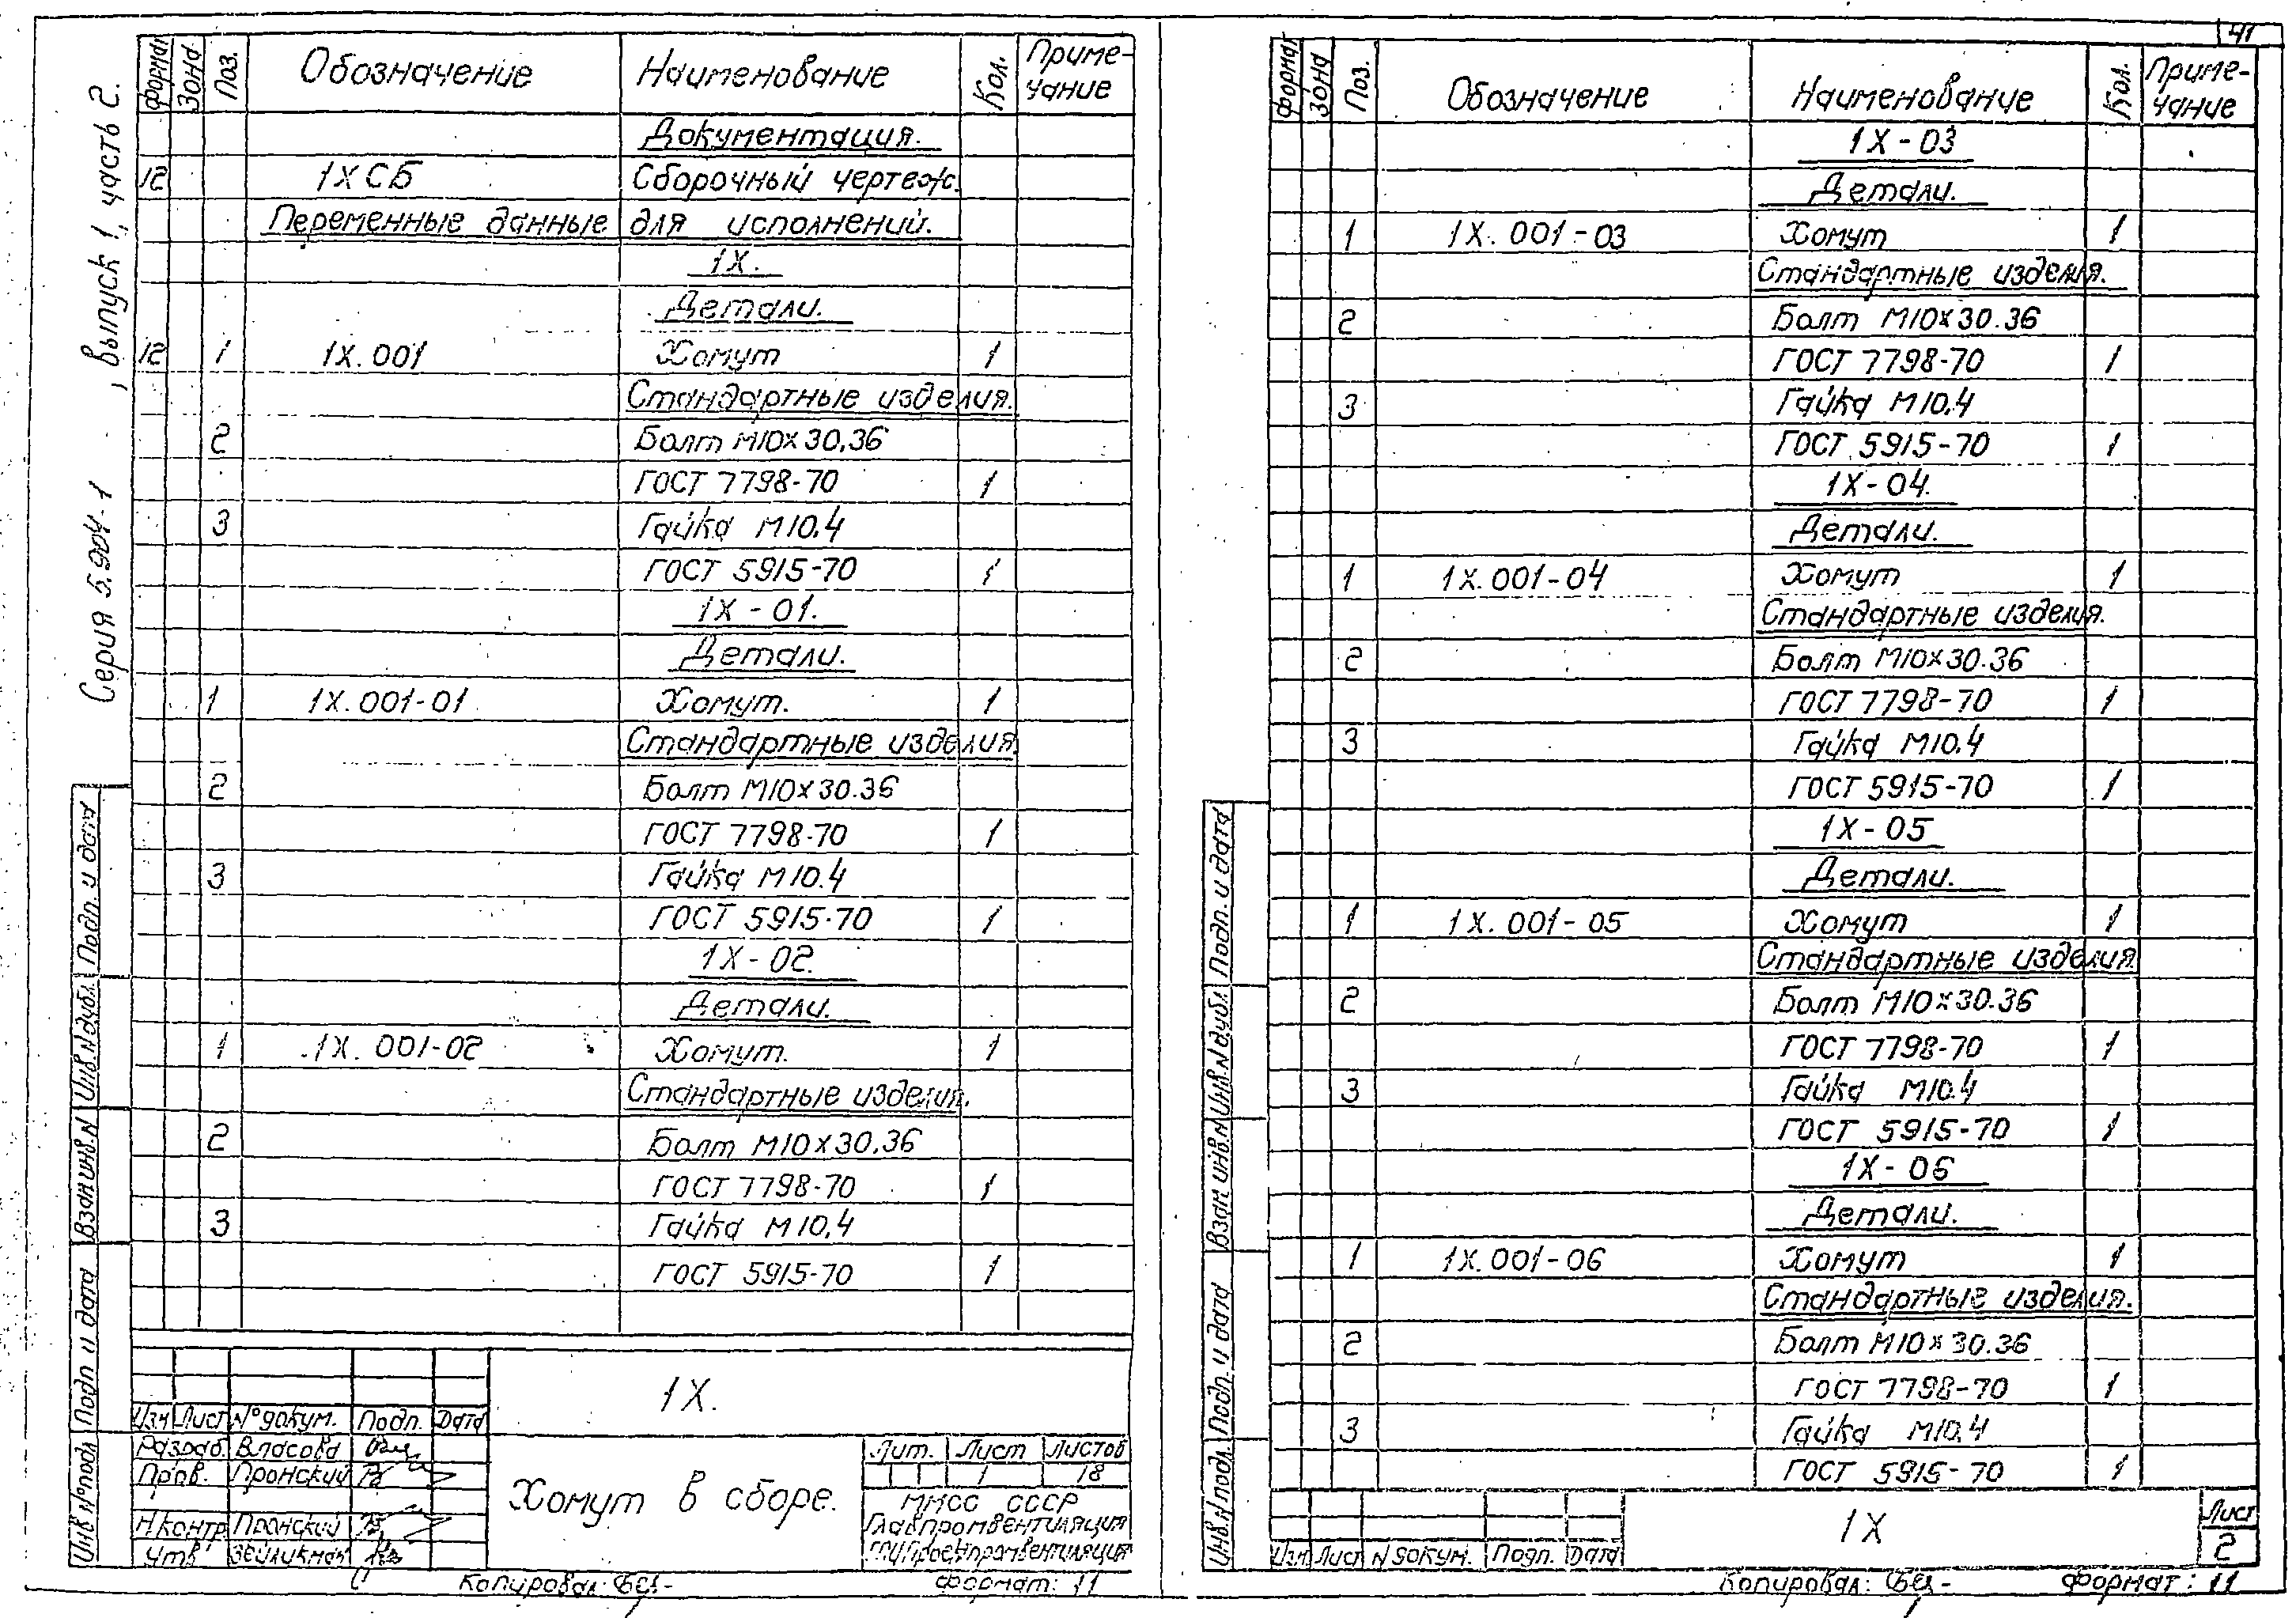 Серия 5.904-1 , выпуск 1, часть 2.
Формат Зона Поз. Обозначение Наименование Кол. Приме-
чание
Документация.
12 1Х СБ Сборочный чертеж.
Переменные данные для исполнений.
1Х.
Детали.
12 1 1Х.001 Хомут 1
Стандартные изделия.
2 Болт М10х30,36
ГОСТ 7798-70 1
3 Гайка М10,4
ГОСТ 5915-70 1
1Х-01.
Детали.
1 1Х.001-01 Хомут. 1
Стандартные изделия.
2 Болт М10х30.36
ГОСТ 7798-70 1
3 Гайка М10.4
ГОСТ 5915-70 1
1Х-02.
Детали.
1 1Х.001-02 Хомут. 1
Стандартные изделия.
2 Болт М10х30.36
ГОСТ 7798-70 1
3 Гайка М10,4
ГОСТ 5915-70 1
Подп. и дата
Инв.N дубл.
Взам инв.N
Подп и дата
Инв N°подл
1Х.
Изм Лист N°докум. Подп. Дата
Разраб. Власова
Пров. Пронский
Н.контр. Пронский
Утв
Хомут в сборе.
Лит. Лист Листов
1 18
ММСС СССР
Главпромвентиляция
Копировал: Формат: 11
41
Формат Зона Поз. Обозначение Наименование Кол. Приме-
чание
1Х-03
Детали.
1 1Х.001-03 Хомут 1
Стандартные изделия.
2 Болт М10х30.36
ГОСТ 7798-70 1
3 Гайка М10.4
ГОСТ 5915-70 1
1Х-04.
Детали.
1 1Х.001-04 Хомут 1
Стандартные изделия.
2 Болт М10х30.36
ГОСТ 7798-70 1
3 Гайка М10.4
ГОСТ 5915-70 1
1Х-05
Детали.
1 1Х.001-05 Хомут 1
Стандартные изделия
2 Болт М10х30.36
ГОСТ 7798-70 1
3 Гайка М10.4
ГОСТ 5915-70 1
1Х-06
Детали.
1 1Х.001-06 Хомут 1
Стандартные изделия.
2 Болт М10х30.36
ГОСТ 7798-70 1
3 Гайка М10.4
ГОСТ 5915-70 1
Подп. и дата
Инв.N дубл
Взам инв.N
Подп. и дата
Инв.N подл.
Изм Лист N докум. Подп. Дата
1Х
Лист
2
Копировал: Формат: 11